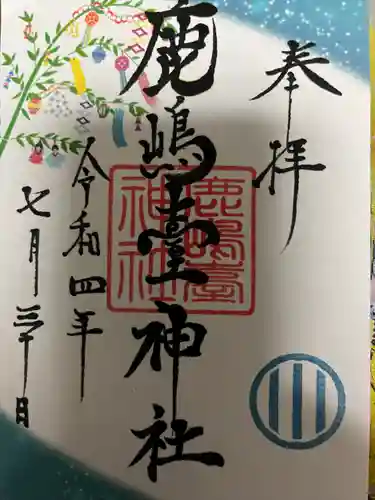 奉拝
鹿嶋臺神社
鹿嶋臺神社
令和四年
七月三十日